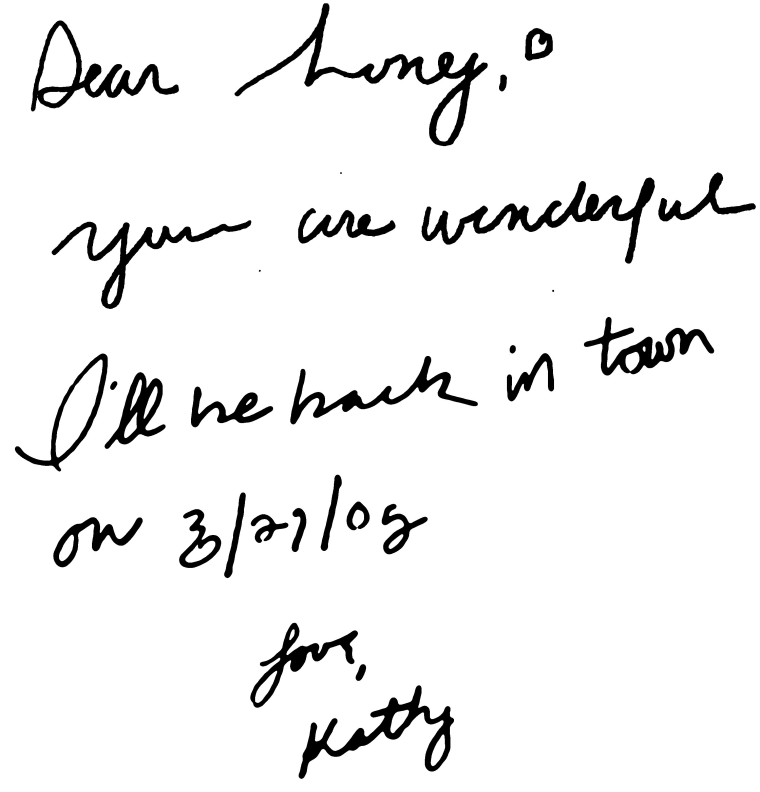 Dear honey,
you are wonderful
I'll be back in town
on 3/27/08
Love,
Kathy